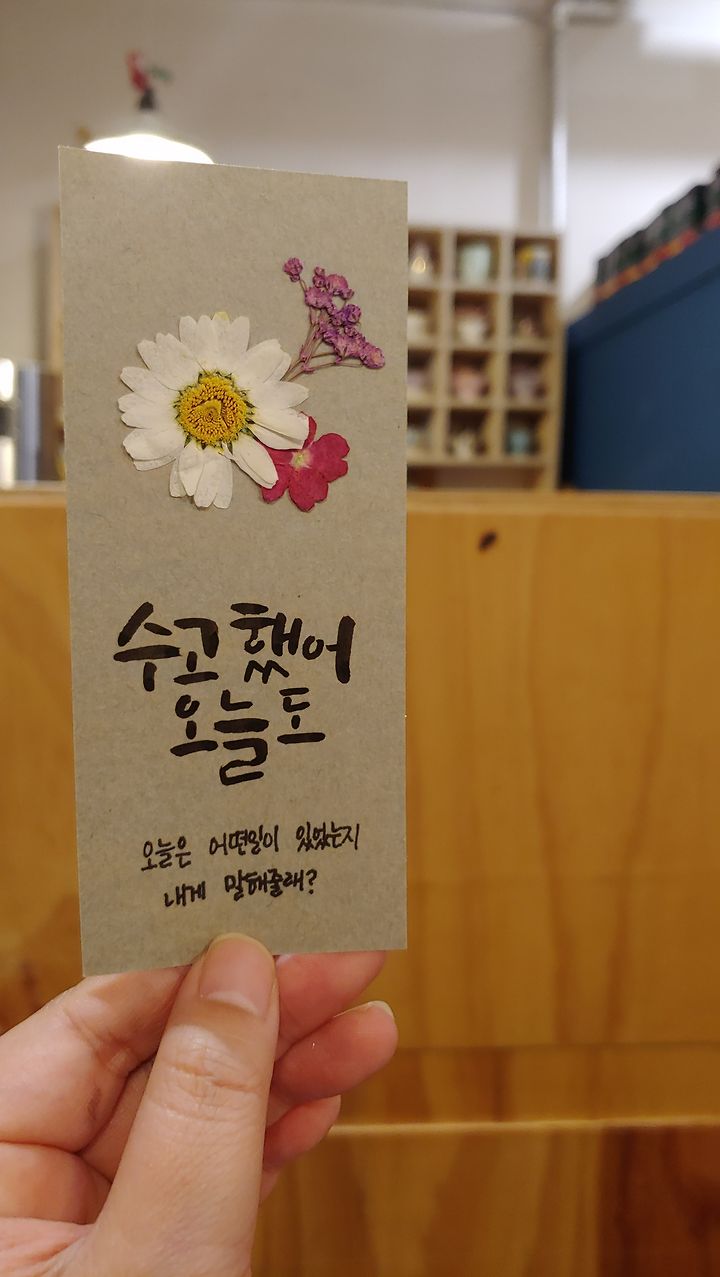 수고했어
오늘도
오늘은 어떤일이 있었는지
내게 말해줄래?